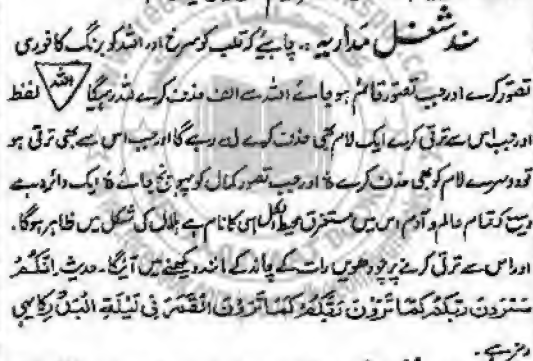 سند شغل مداریہ :۔ چاہئے کہ قلب کو سرخ اور اللہ کو برنگ کافوری
تصور کرے اور جب تصور قائم ہو جائے اللہ سے الف حذف کرے للہ رہیگا اللہ لفظ
اور جب اس سے ترقی کرے ایک لام بھی حذف کرے لہ رہے گا اور جب اس سے بھی ترقی ہو
تو دوسرے لام کو بھی حذف کرے ہ اور جب تصور کمال کو پہونچ جائے ہ ایک دائرہ ہے
وسیع کہ تمام عالم و آدم اس میں مستغرق محیط الکل اسی کا نام ہے ہلال کی شکل میں ظاہر ہوگا۔
اور اس سے ترقی کرنے پر چودھویں رات کے چاند کے مانند دیکھنے میں آئیگا۔ حدیث اِنَّكُمْ
سَتَرَوْنَ رَبَّكُمْ كَمَا تَرَوْنَ رَبَّكُمْ كَمَا تَرَوْنَ الْقَمَرَ فِی لَیْلَةِ الْبَدْرِ کا یہی
رمز ہے۔